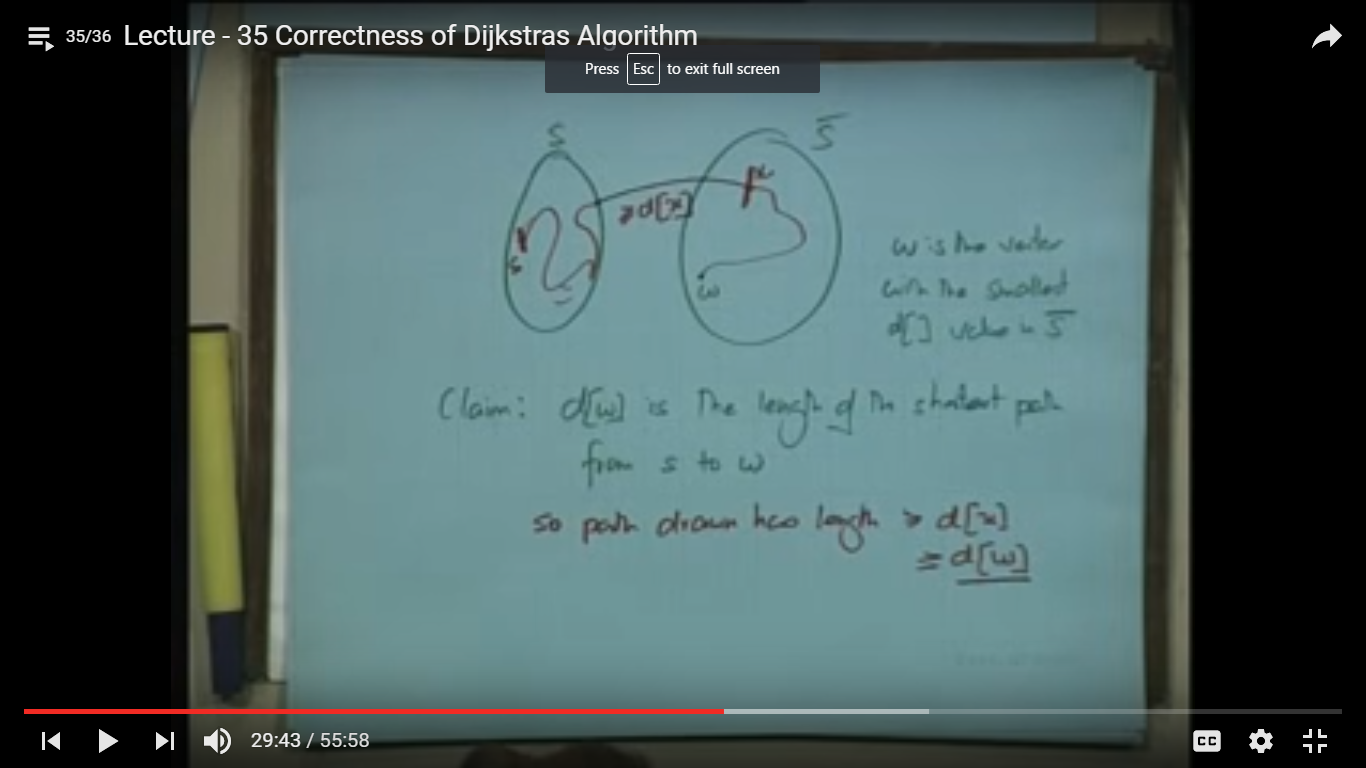 35/36 Lecture - 35 Correctness of Dijkstras Algorithm
Press Esc to exit full screen
S
S̅
x
≥ d[x]
s
w
w is the vertex
with the smallest
d[] value in S̅
Claim: d[w] is the length of the shortest path
from s to w
so path drawn has length ≥ d[x]
≥ d[w]
29:43 / 55:58
CC